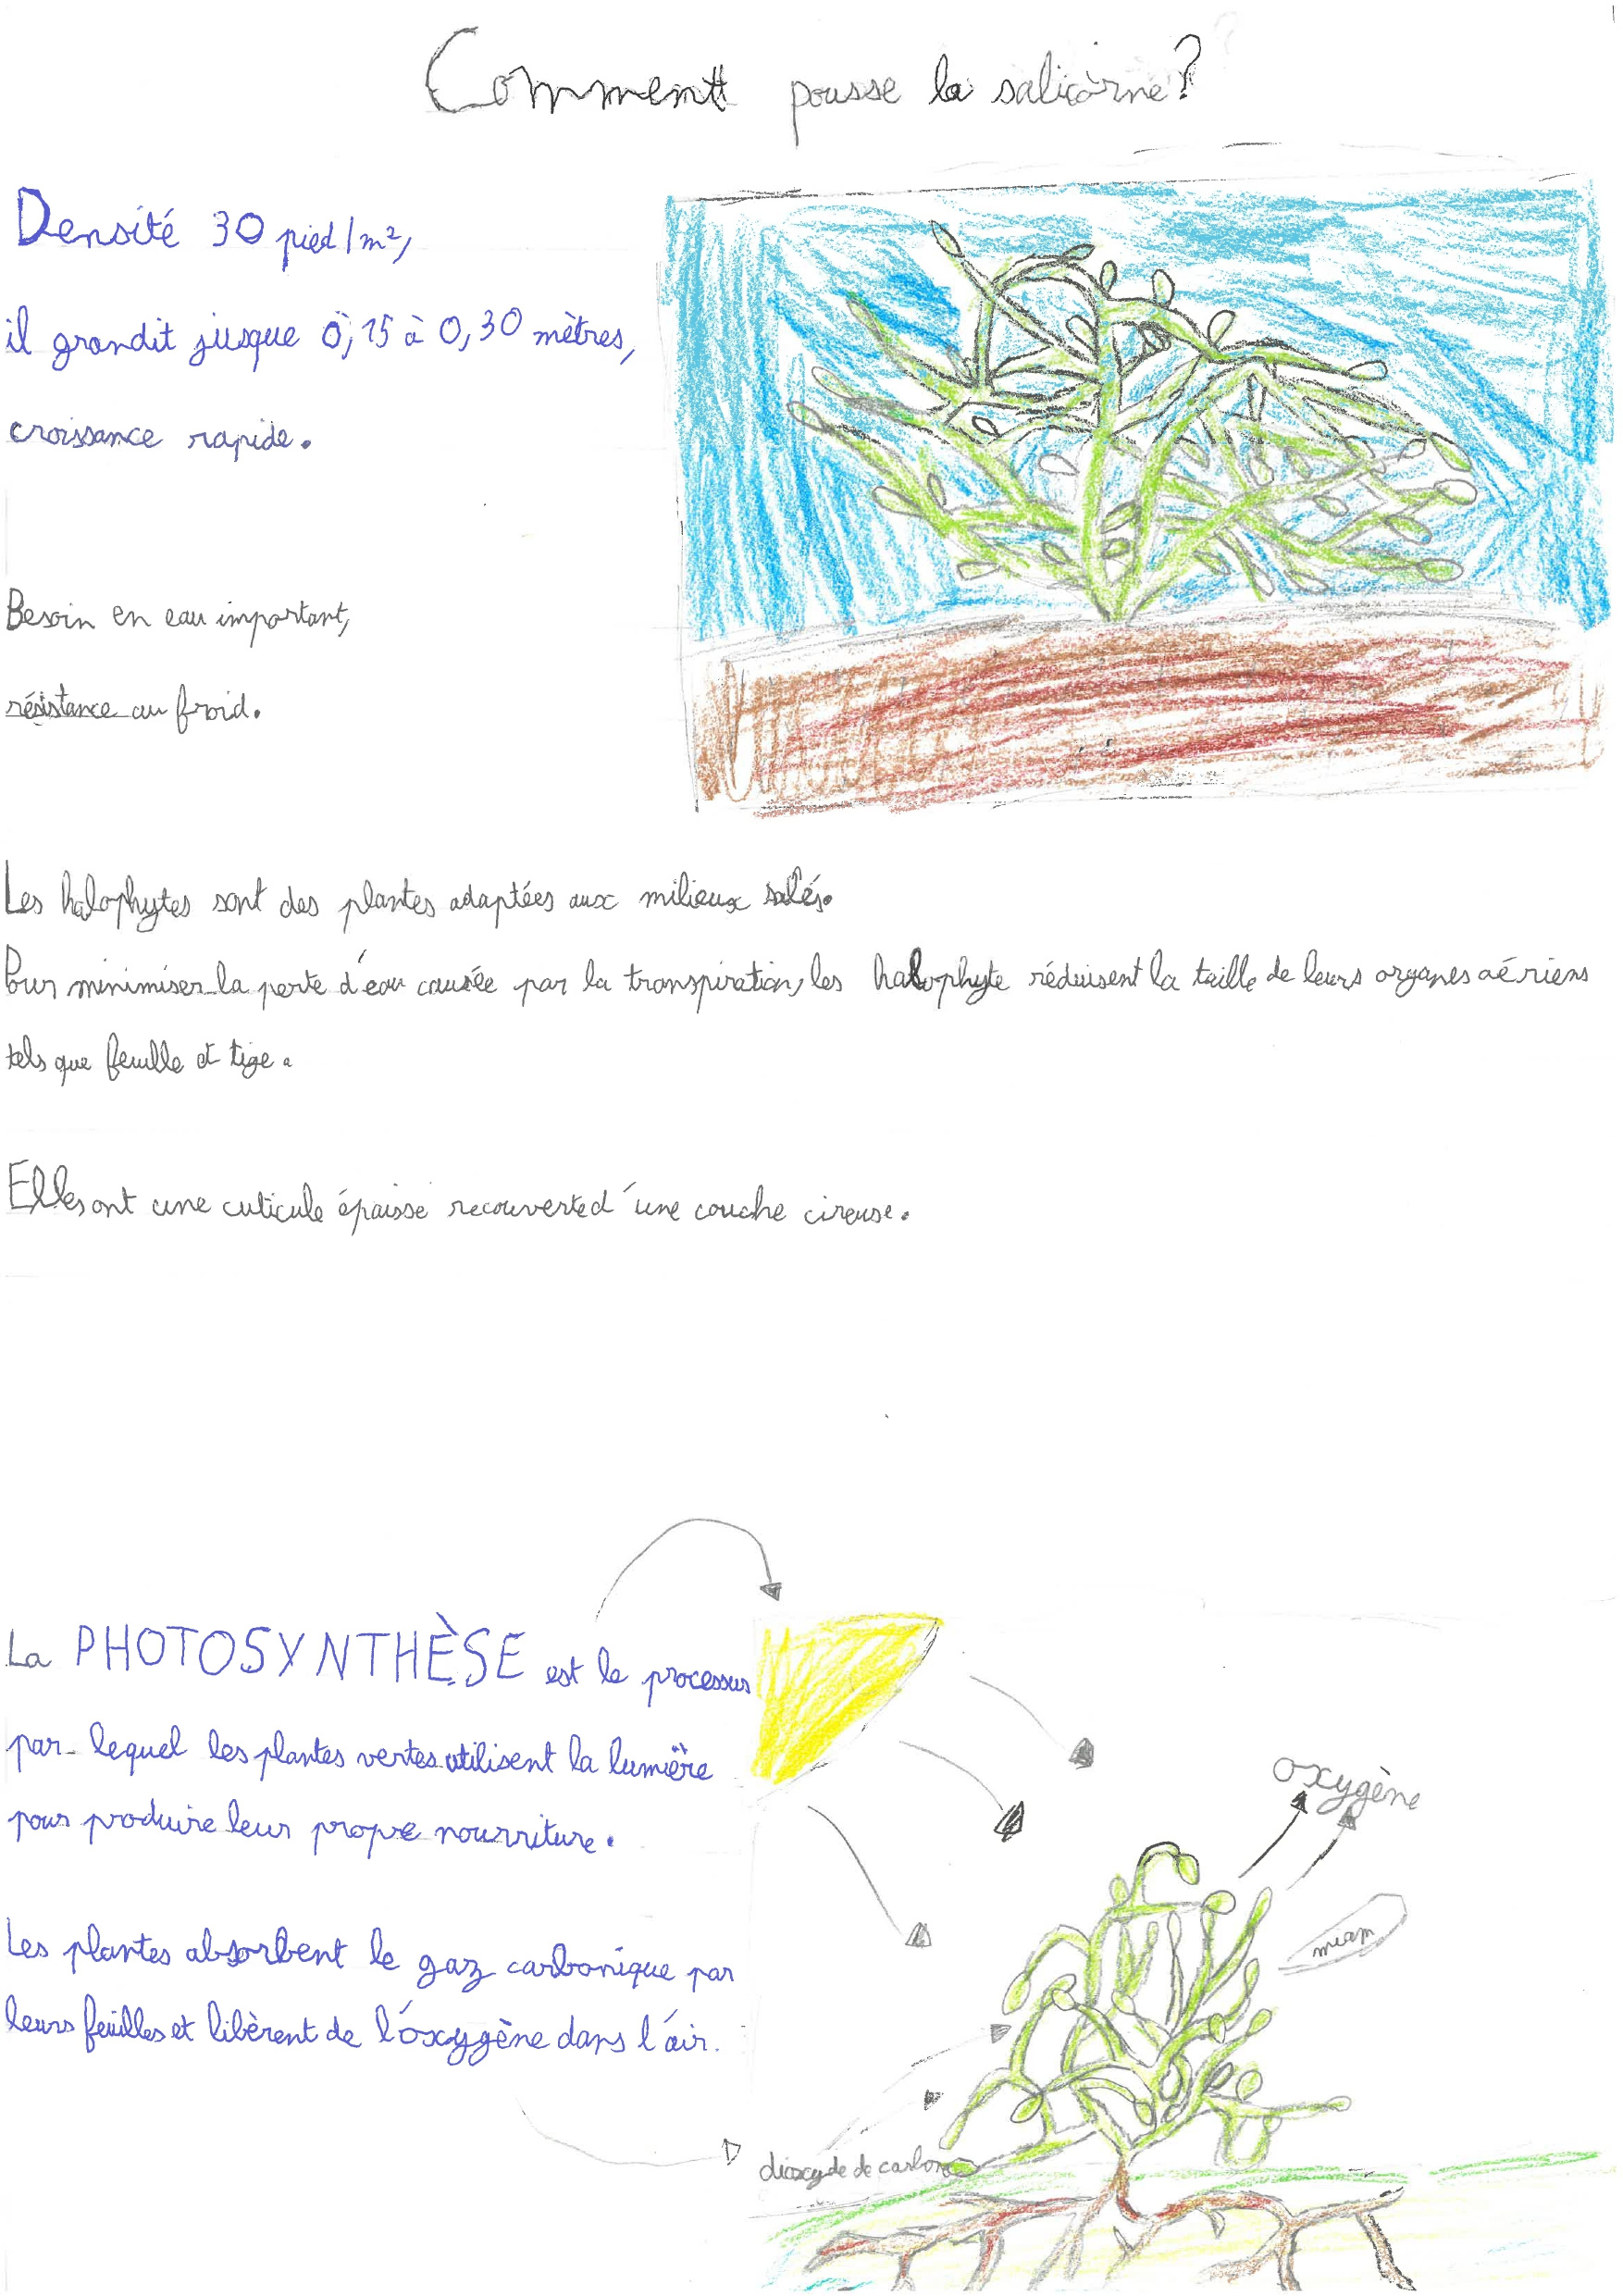 Comment pousse la salicorne?
Densité 30 pied/m²,
il grandit jusque 0,15 à 0,30 mètres,
croissance rapide.
Besoin en eau important,
résistance au froid.
Les halophytes sont des plantes adaptées aux milieux salés.
Pour minimiser la perte d'eau causée par la transpiration, les halophyte réduisent la taille de leurs organes aériens
tels que feuille et tige.
Elles ont une cuticule épaisse recouverte d'une couche cireuse.
La PHOTOSYNTHÈSE est le processus
par lequel les plantes vertes utilisent la lumière
pour produire leur propre nourriture.
Les plantes absorbent le gaz carbonique par
leurs feuilles et libèrent de l'oxygène dans l'air.
oxygène
miam
dioxyde de carbone